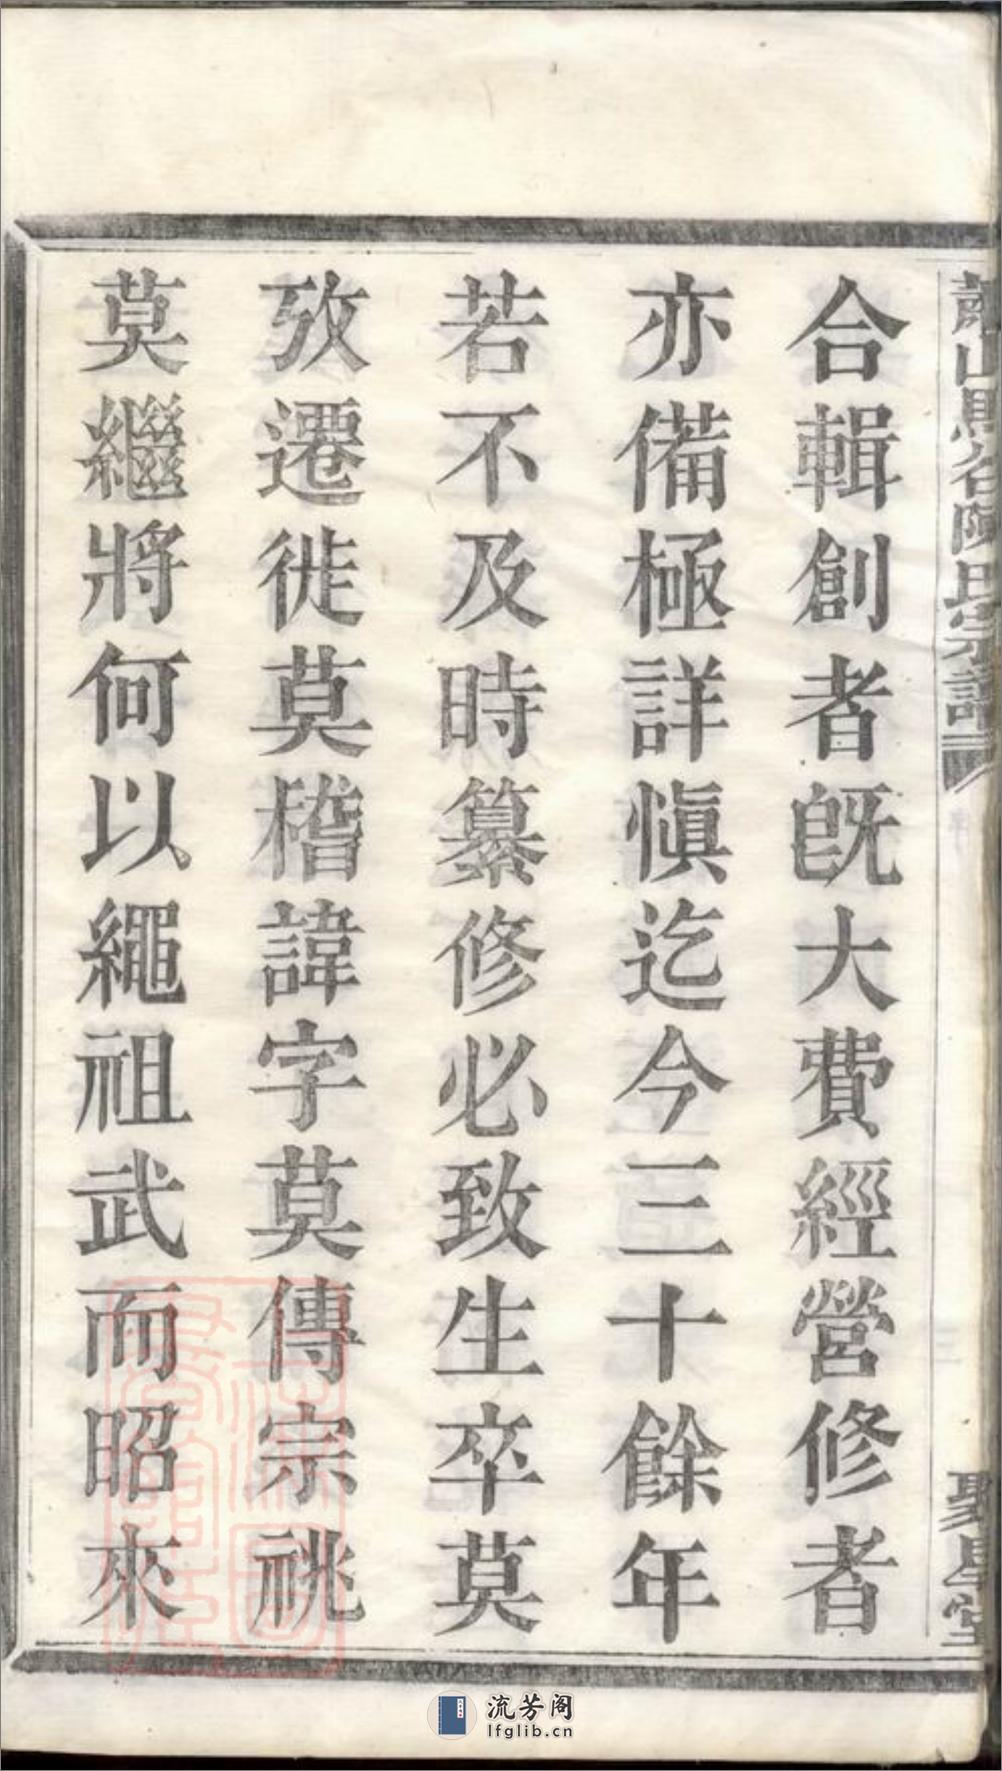 蕭山馬谷陳氏宗譜
聚星堂
合輯創者旣大費經營修者
亦備極詳愼迄今三十餘年
若不及時纂修必致生卒莫
攷遷徙莫稽諱字莫傳宗祧
莫繼將何以繩祖武而昭來
流芳阁
lfglib.cn